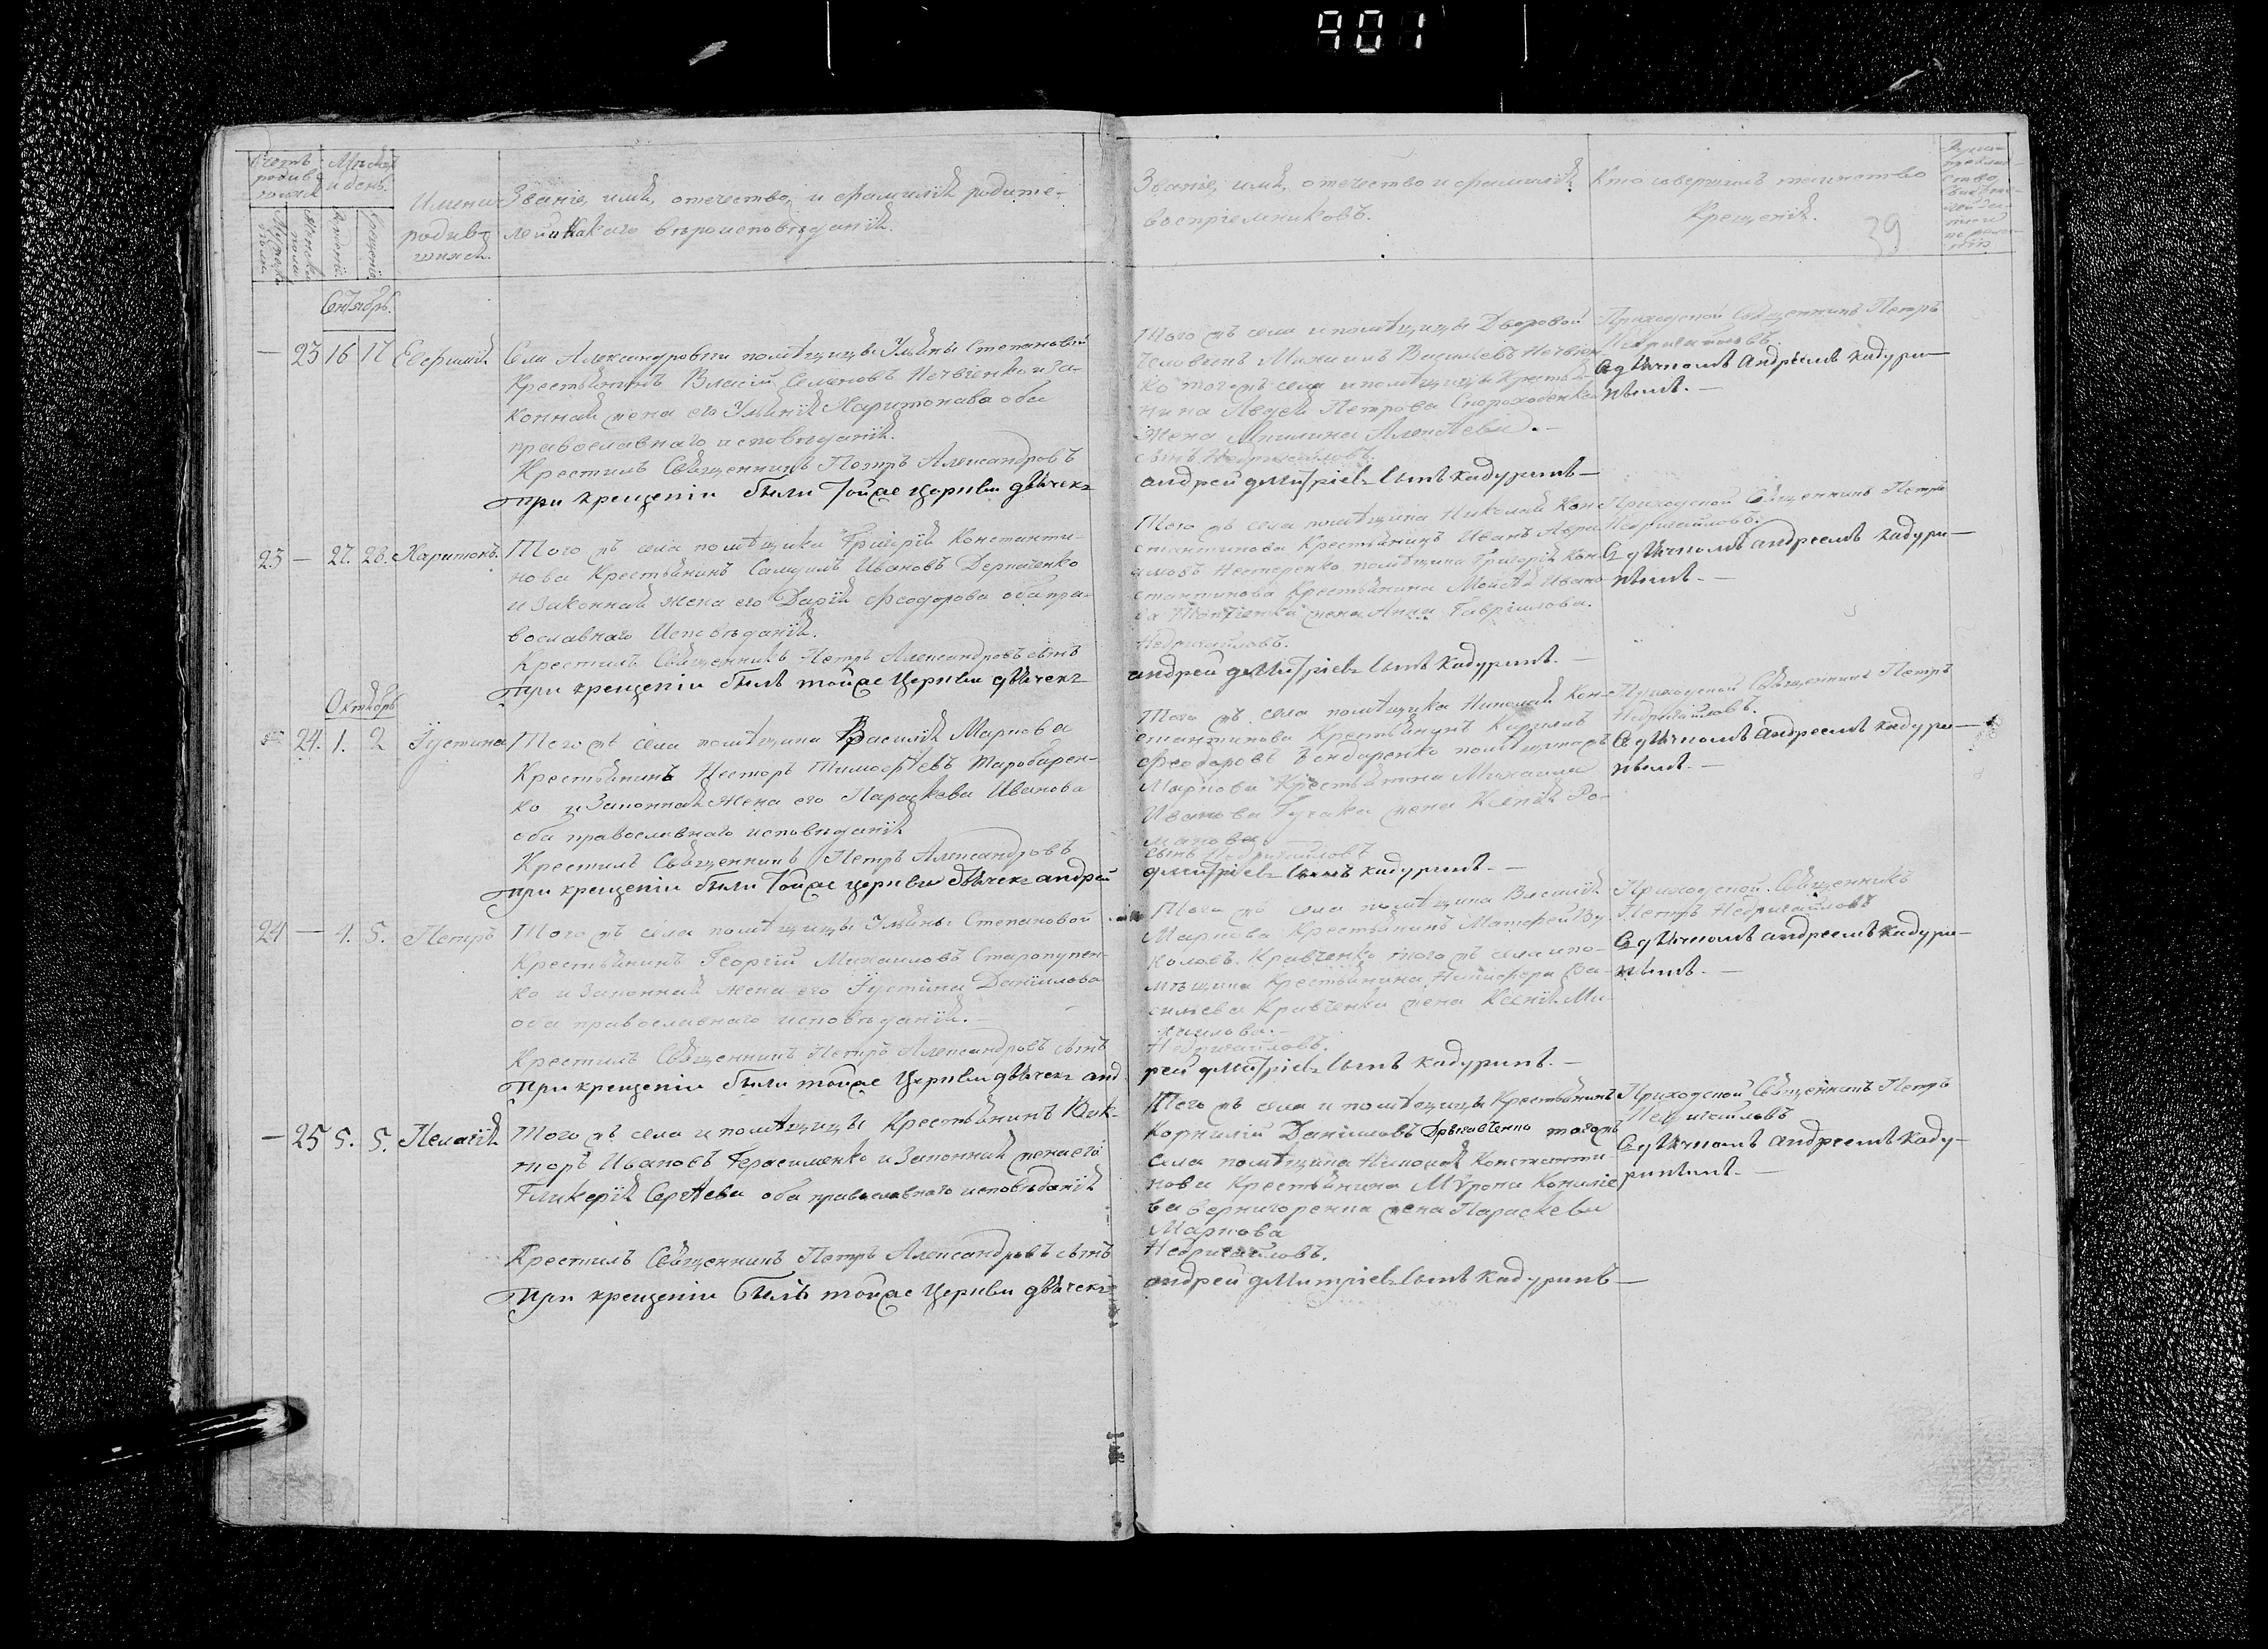 901
Счетъ родив- шихся
Мѣсяцъ и день.
Мужеска пола
Женска пола
Рожденія
Крещенія
Имена родив- шихся.
Званіе, имя, отечество, и фамилія родите-
лей и Какаго вѣроисповѣданія.
Званіе, имя, отечество и фамилія
воспріемниковъ.
Кто совершилъ таинство
Крещенія.
39
Сентябрь.
— 23 16 17 Евфимія
Села Александровки помѣщицы Ульяны Степановой
Крестьянинъ Власій Семеновъ Нечвіенко и За-
конная жена его Ульянія Харитонова оба
православнаго исповѣданія.
Крестилъ Священникъ Петръ Александровъ
При крещеніи были тойже Церкви дьячекъ
Того жъ села и помѣщицы Дворовой
Человекъ Михаилъ Васильевъ Нечвіен-
ко того жъ села и помѣщицы Крестья-
нина Авдея Петрова Скороходенка
жена Акилина Алексѣева. —
сынъ Недригайловъ.
андрей дмитріевъ сынъ кадуринъ —
Приходской Священникъ Петръ
Недригайловъ.
Съ дьячкомъ Андреемъ кадури-
нымъ. —
23 — 27. 28. Харитонъ.
Того жъ села помѣщика Григорія Константи-
нова Крестьянинъ Самуилъ Ивановъ Деркаченко
и Законная жена его Дарія Феодорова оба пра-
вославнаго Исповѣданія.
Крестилъ Священникъ Петръ Александровъ сынъ
При крещеніи былъ тойже Церкви дьячекъ
Того жъ села помѣщика Николая Кон-
стантинова Крестьянинъ Иванъ Авра-
амовъ Нестеренко помѣщика Григорія Кон-
стантинова Крестьянина Моисѣя Ивано-
ва жена Анна Гавріилова.
Недригайловъ.
андрей дмитріевъ сынъ Кадуринъ. —
Приходской Священникъ Петръ
Недригайловъ.
Съ дьячкомъ андреемъ кадури-
нымъ. —
Октябрь
— 24. 1. 2 Іустина
Того жъ села помѣщика Василія Маркова
Крестьянинъ Несторъ Тимофѣевъ Таробарен-
ко и Законная жена его Параскева Иванова
оба православнаго исповѣданія
Крестилъ Священникъ Петръ Александровъ
При крещеніи были тойже церкви дьячекъ андрей
Того жъ села помѣщика Николая Кон-
стантинова Крестьянинъ Кирилъ
Феодоровъ Бондаренко помѣщика жъ
Маркова Крестьянина Михаила
Иванова Гучака жена Ксенія Ро-
манова
сынъ Недригайловъ
дмитріевъ сынъ кадуринъ. —
Приходской Священникъ Петръ
Недригайловъ.
Съ дьячкомъ андреемъ кадури-
нымъ. —
24 — 4. 5. Петръ
Того жъ села помѣщицы Ульяны Степановой
Крестьянинъ Георгій Михаиловъ Старопупен-
ко и Законная жена его Іустина Даніилова
оба православнаго исповѣданія. —
Крестилъ Священникъ Петръ Александровъ сынъ
При крещеніи были тойже Церкви дьячекъ анд-
Того жъ села помѣщика Василія
Маркова Крестьянинъ Матфей Ву-
коловъ Кравченко того жъ села и по-
мѣщика Крестьянина Никифора Ва-
сильева Кравченка жена Ксенія Ми-
хаилова. —
Недригайловъ.
рей дмитріевъ сынъ кадуринъ. —
Приходской Священникъ
Петръ Недригайловъ
Съ дьячкомъ андреемъ кадури-
нымъ. —
— 25 5. 5. Пелагія
Того жъ села и помѣщицы Крестьянинъ Вик-
торъ Ивановъ Герасименко и Законная жена его
Гликерія Сергѣева оба православнаго исповѣданія
Крестилъ Священникъ Петръ Александровъ сынъ
При крещеніи былъ тойже Церкви дьячекъ
Того жъ села и помѣщицы Крестьянинъ
Корнилій Даніиловъ того жъ
Села помѣщика Николая Константи-
нова Крестьянина Мѵрона Корниліе-
ва жена Параскева
Маркова
Недригайловъ.
андрей дмитріевъ сынъ кадуринъ —
Приходской Священникъ Петръ
Недригайловъ
Съ дьячкомъ андреемъ каду-
ринымъ. —